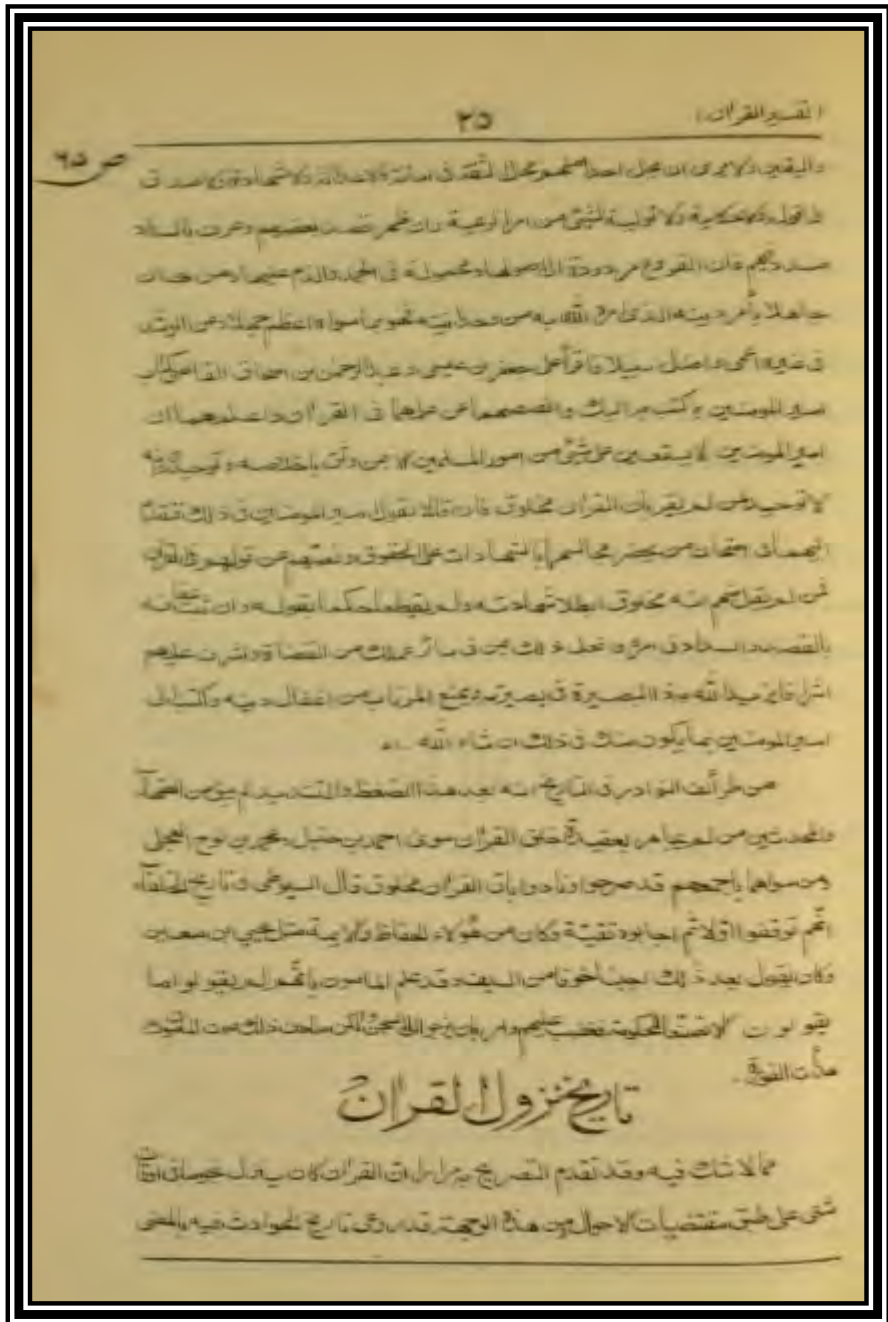 (تفسير القرآن)
٢٥
ص ٦٥
واليقين ولا يرى ان يحل احدا منهم محل الثقة في امانة ولا عدالة ولا شهادة ولا صدق في
قول ولا حكاية ولا تولية لشئ من امر الرعية وان ظهر قصد بعضهم وعرف بالسداد
مسدد فيهم فان الفروع مردودة الى اصولها ومحمولة في الحمد والذم عليها ومن كان
جاهلا بأمر دينه الذي امره الله به من وحدانيته فهو بما سواه اعظم جهلا وعن الرشد
في غيره اعمى واضل سبيلا فاقرأ على جعفر بن عيسى وعبد الرحمن بن اسحاق القاضي كتاب
امير المومنين بما كتب به اليك وانصصهما عن علمهما في القرآن واعلمهما ان
امير المومنين لا يستعين على شئ من امور المسلمين الا بمن وثق باخلاصه وتوحيده وانه
لا توحيد لمن لم يقر بان القرآن مخلوق فان قالا بقول امير المومنين في ذلك فتقدم
اليهما في امتحان من يحضر مجالسهما بالشهادات على الحقوق ونصهم عن قولهم في القرآن
فمن لم يقل منهم انه مخلوق ابطلا شهادته ولم يقطعا حكما بقوله وان ثبت عفافه
بالقصد والسداد في امره وافعل ذلك بمن في سائر عملك من القضاة واشرف عليهم
اشرافا يزيد الله به ذا البصيرة في بصيرته ويمنع المرتاب من اغفال دينه واكتب الى
امير المومنين بما يكون منك في ذلك ان شاء الله ـ اه
من طرائف النوادر في التاريخ انه بعد هذا الضغط والتشديد لم يبق من الفقهاء
والمحدثين من لم يجاهر بعقيدة خلق القرآن سوى احمد بن حنبل ومحمد بن نوح العجلي
ومن سواهما باجمعهم قد صرحوا ونادوا بان القرآن مخلوق قال السيوطي في تاريخ الخلفاء
انهم توقفوا اولا ثم اجابوه تقية وكان من هؤلاء الحفاظ والايمة مثل يحيي ابن معين
وكان يقول بعد ذلك اجبنا خوفا من السيف وقد علم المامون بانهم لم يقولوا ما
يقولون الا تصنعا للحكومة فغضب عليهم وامر بان يرجعوا اليه لكن ساعف ذلك موت المامون
هدأت الفورة .
تاريخ نزول القرآن
مما لا شك فيه وقد تقدم التصريح به مرارا ان القرآن كان ينزل حصصا في اوقات
شتى على طبق مقتضيات الاحوال ومن هذه الوجهة قد روعى تاريخ الحوادث فيه بالمعنى